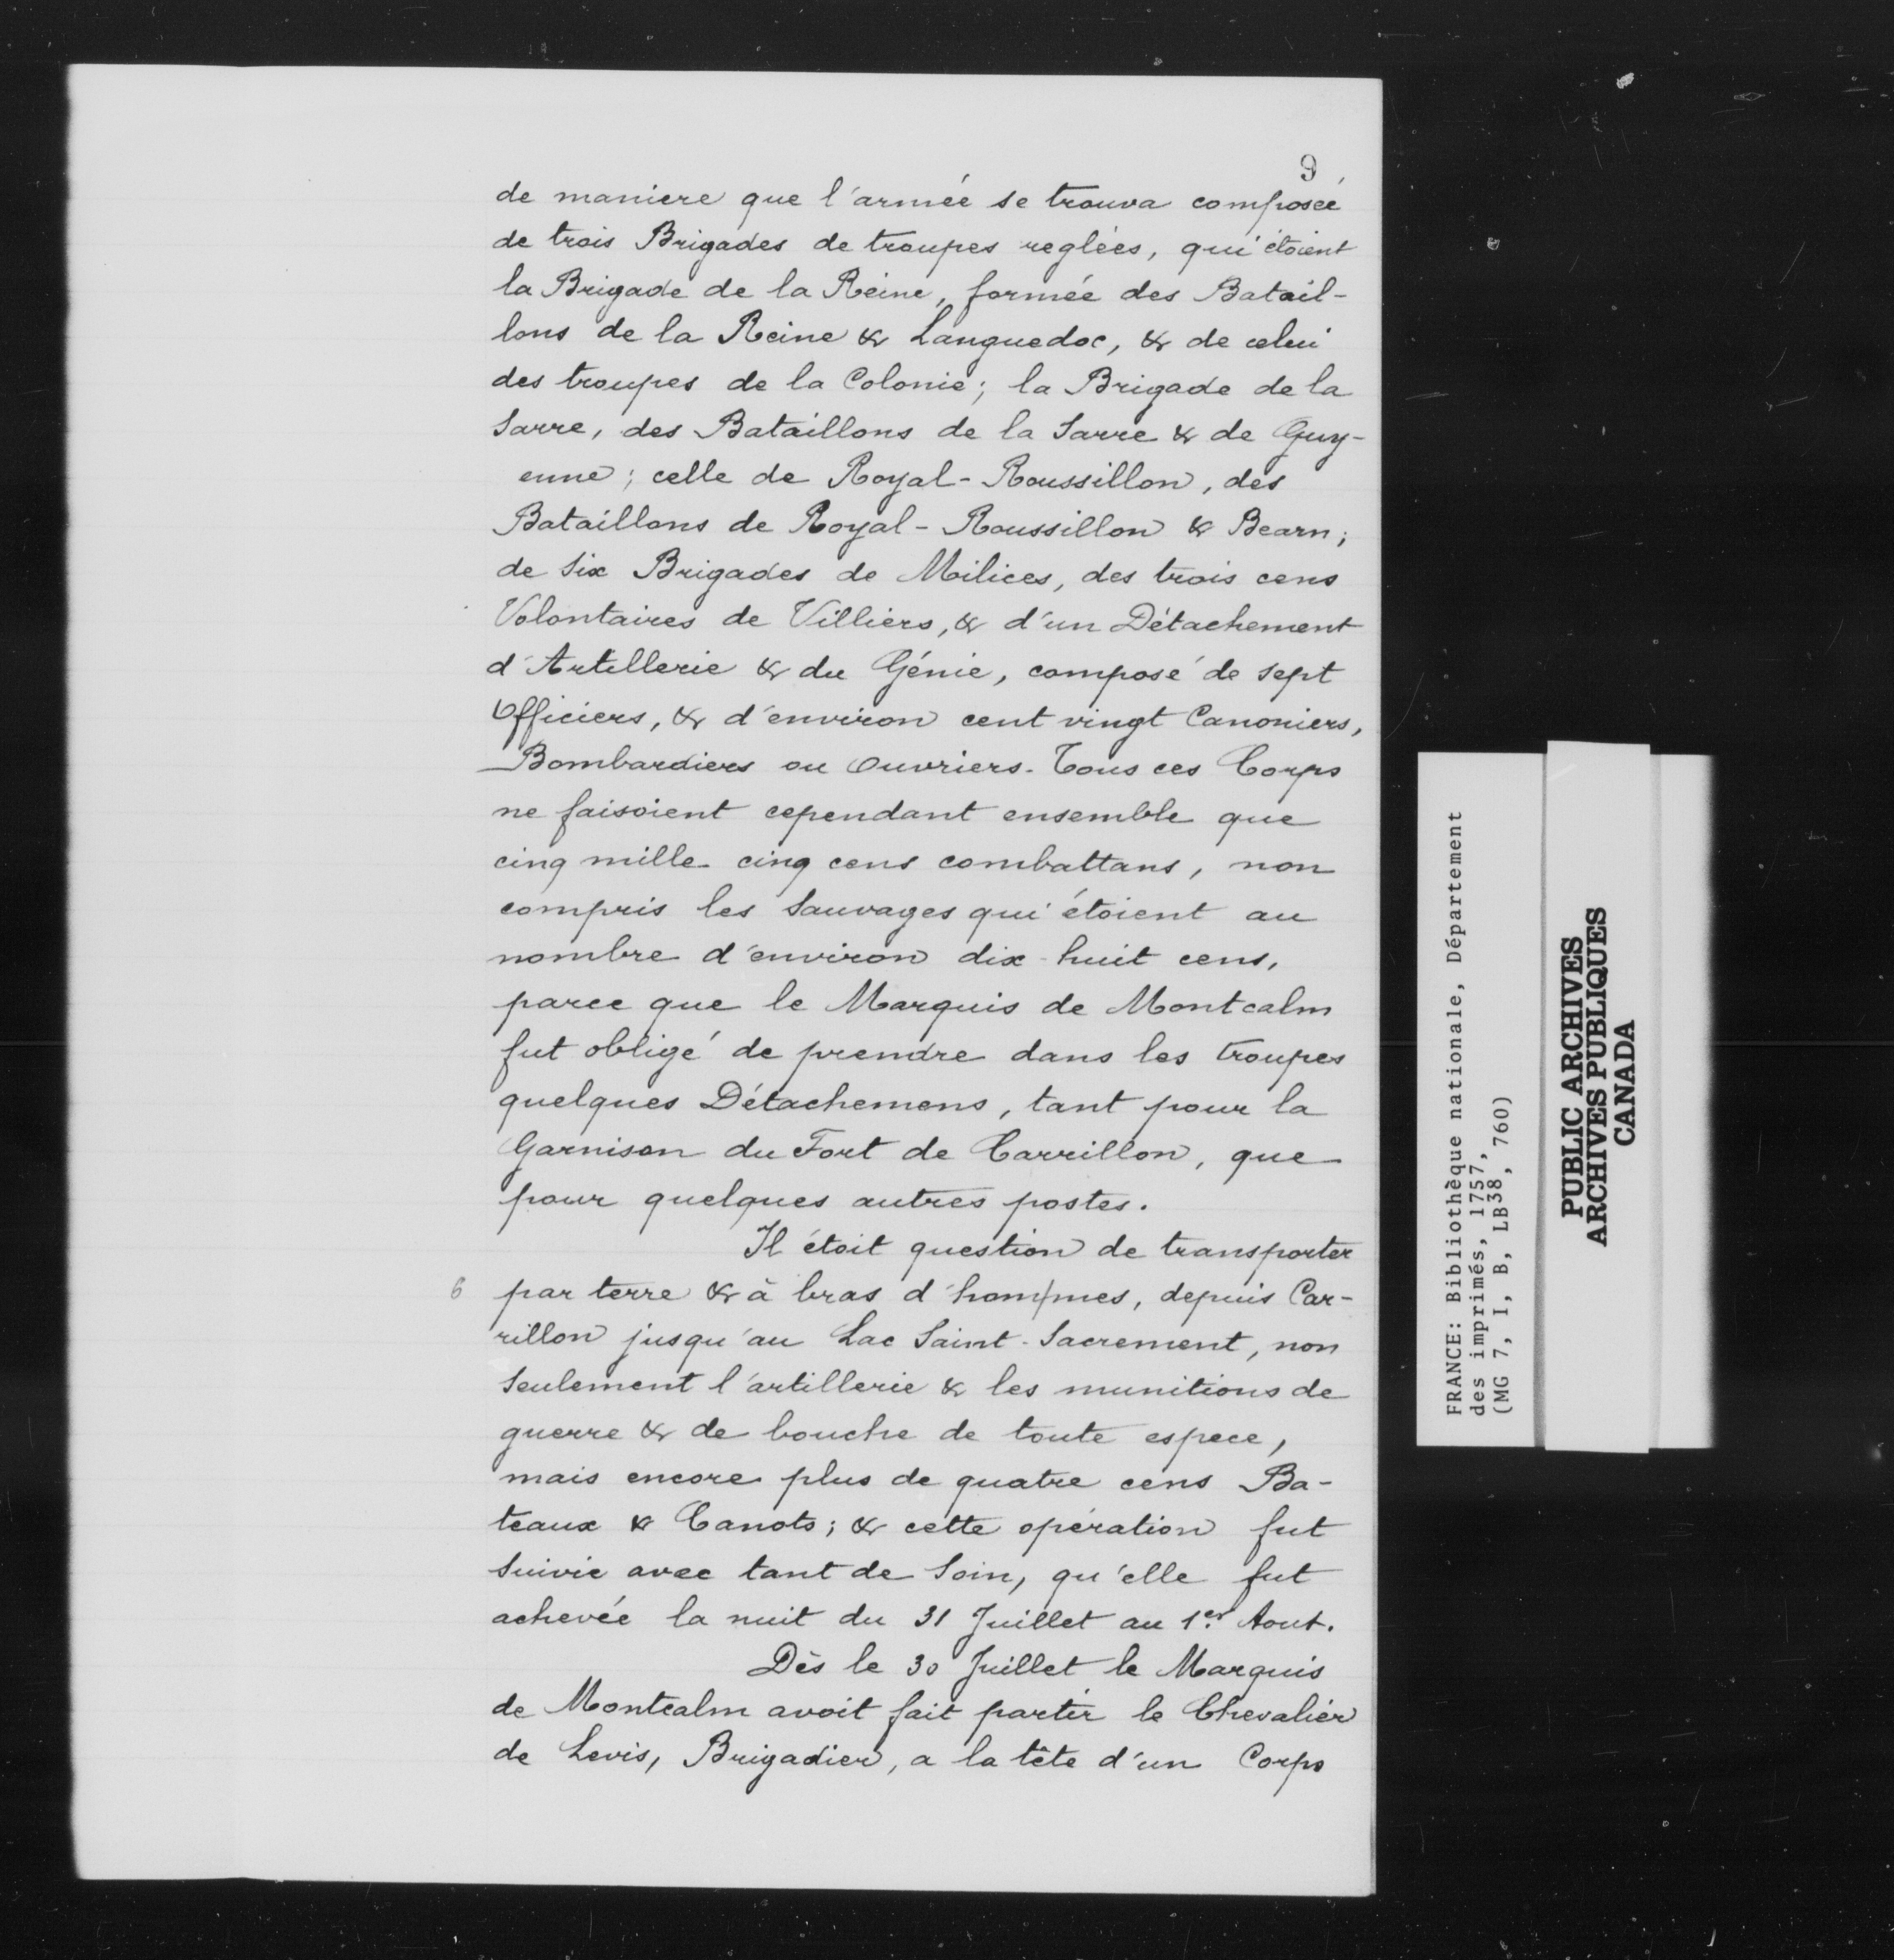 9
de maniere que l'armée se trouva composée
de trois Brigades de troupes reglées, qui étoient
la Brigade de la Reine, formée des Batail-
lons de la Reine & Languedoc, & de celui
des troupes de la Colonie; la Brigade de la
Sarre, des Bataillons de la Sarre & de Guy-
enne; celle de Royal-Roussillon, des
Bataillons de Royal-Roussillon & Bearn;
de six Brigades de Milices, des trois cens
Volontaires de Villiers, & d'un Détachement
d'Artillerie & du Génie, composé de sept
Officiers, & d'environ cent vingt Canoniers,
Bombardiers ou Ouvriers. Tous ces Corps
ne faisoient cependant ensemble que
cinq mille cinq cens combattans, non
compris les Sauvages qui étoient au
nombre d'environ dix-huit cens,
parce que le Marquis de Montcalm
fut obligé de prendre dans les troupes
quelques Détachemens, tant pour la
Garnison du Fort de Carrillon, que
pour quelques autres postes.
Il étoit question de transporter
6 par terre & à bras d'hom/mes, depuis Car-
rillon jusqu'au Lac Saint-Sacrement, non
seulement l'artillerie & les munitions de
guerre & de bouche de toute espece,
mais encore plus de quatre cens Ba-
teaux & Canots; & cette opération fut
suivie avec tant de soin, qu'elle fut
achevée la nuit du 31 Juillet au 1er Aout.
Dès le 30 Juillet le Marquis
de Montcalm avoit fait partir le Chevalier
de Levis, Brigadier, a la tête d'un Corps
FRANCE: Bibliothèque nationale, Département
des imprimés, 1757,
(MG 7, I, B, LB38, 760)
PUBLIC ARCHIVES
ARCHIVES PUBLIQUES
CANADA